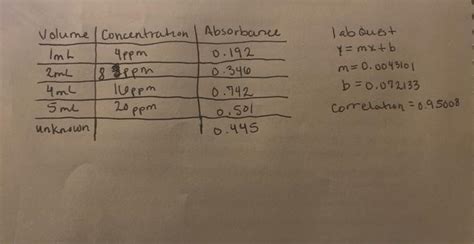 Volume Concentration Absorbance
1mL 4ppm 0.192
2mL 8 ppm 0.346
4mL 16ppm 0.742
5mL 20ppm 0.501
unknown 0.445
lab Quest
y = mx + b
m = 0.0043101
b = 0.072133
correlation = 0.95008